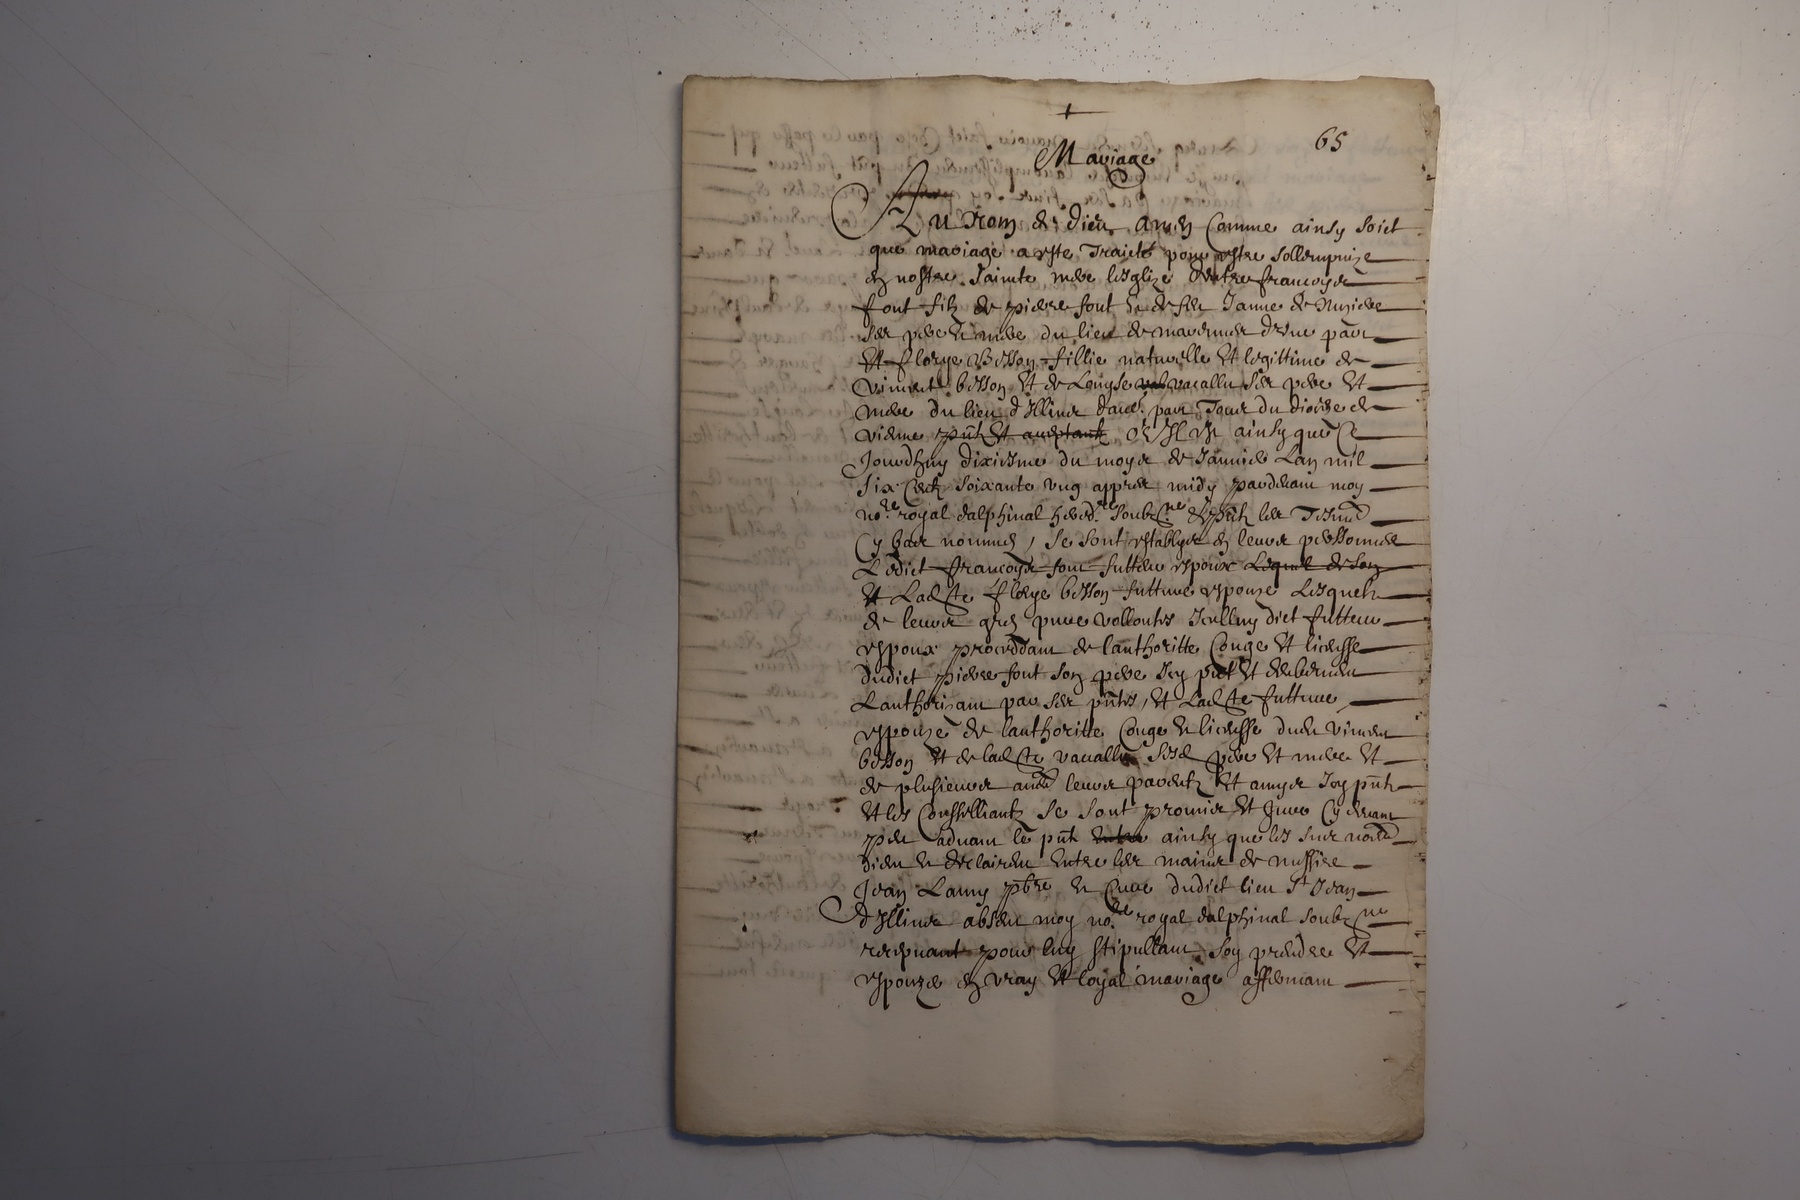 65
Mariage
Au Nom de dieu amen Comme ainsy soict
que mariage aye este Traicté pour estre sollempnize
en nostre Sainte mere lesglize Entre francoys
font filz de pierre font et de feu Janne de
ses pere et mere du lieu de
Et floryе Besson fillie naturelle Et legittime de
Vincent besson Et de Louyse vacallu ses pere Et
mere du lieu d'Illins dicte par. Tous du dioceze de
vienne pntz Et aceptantz Or Il Est ainsy que Ce
Jourdhuy dixiesme du moys de Janvier Lan mil
Six Centz soixante ung appres midy pardevant moy
nore royal dalphinal hered. soubzne Et pntz les Tesmo
Cy bas nommes, se sont establys en leurs personnes
Ledict francoys font futteur espoux Lequel de son
Et Ladcte florye besson futture espouze Lesquelz
de leurs gres pures vollontes Icelluy dict futteur
espoux proceddant de lauthoritte Conge Et licensse
dudict pierre font son pere Icy pnt Et
Lauthorizant par ses pntes, Et Ladcte futture
espouze de lauthoritte Conge Et licensse dudt vincent
besson Et de ladcte vacallu sesd pere Et mere Et
de plusieurs aues leurs parentz Et amys Icy pntz
Et les Conseilliantz se sont promis Et Jure Cy devant
dieu Et Entre les mains de messire
Jean Lamy pbre Et Cure dudict lieu St Jean
d'Illins absent moy nore royal dalphinal soubzne
recepvant pour luy stipullant soy prendre Et
espouzer En vray Et loyal mariage affermant